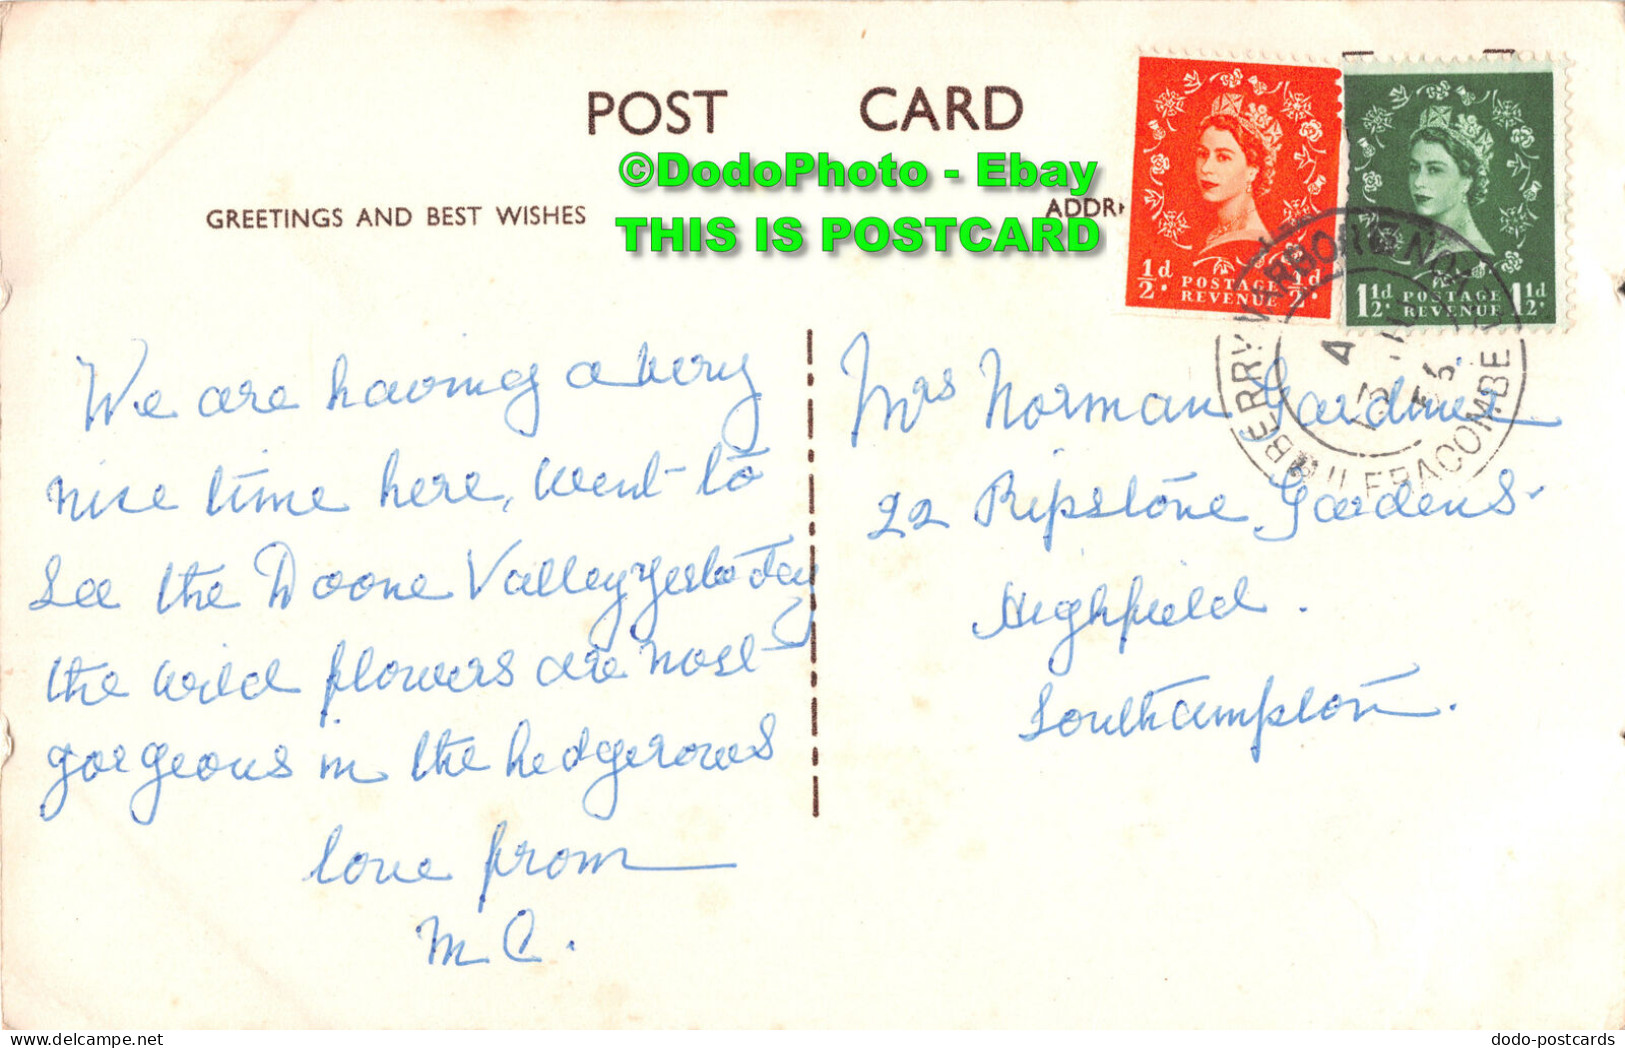 POST CARD
©DodoPhoto - Ebay
THIS IS POSTCARD
GREETINGS AND BEST WISHES
ADDR
½d. POSTAGE REVENUE ½d.
1½d. POSTAGE REVENUE 1½d.
BERRYNARBOR ILFRACOMBE
We are having a very
nice time here, went to
see the Doone Valley yesterday
the wild flowers are most
gorgeous in the hedgerows
love from
M C.
Mrs Norman Gardiner
22 Ripstone Gardens
Highfield.
Southampton.
dodo-postcards
delcampe.net